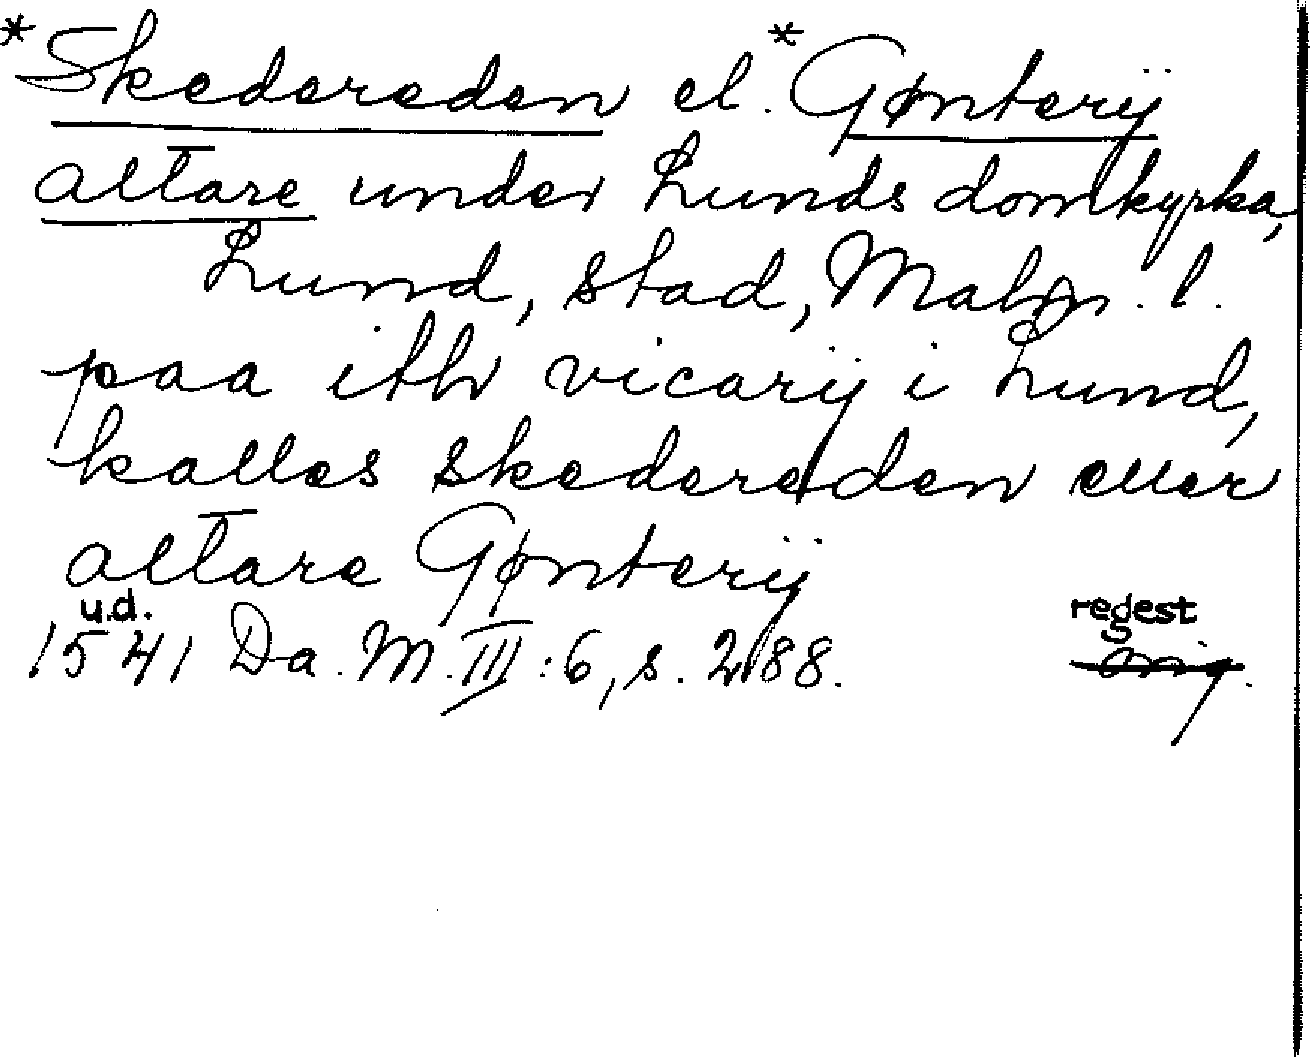 *Skedereden el. *Gønterÿ
altare under Lunds domkyrka,
Lund, stad, Malm. l.
paa ith vicarÿ i Lund,
kalles skedereden eller
altare Gønterÿ
u.d.
1541 Da. M. III:6, s. 288.
regest